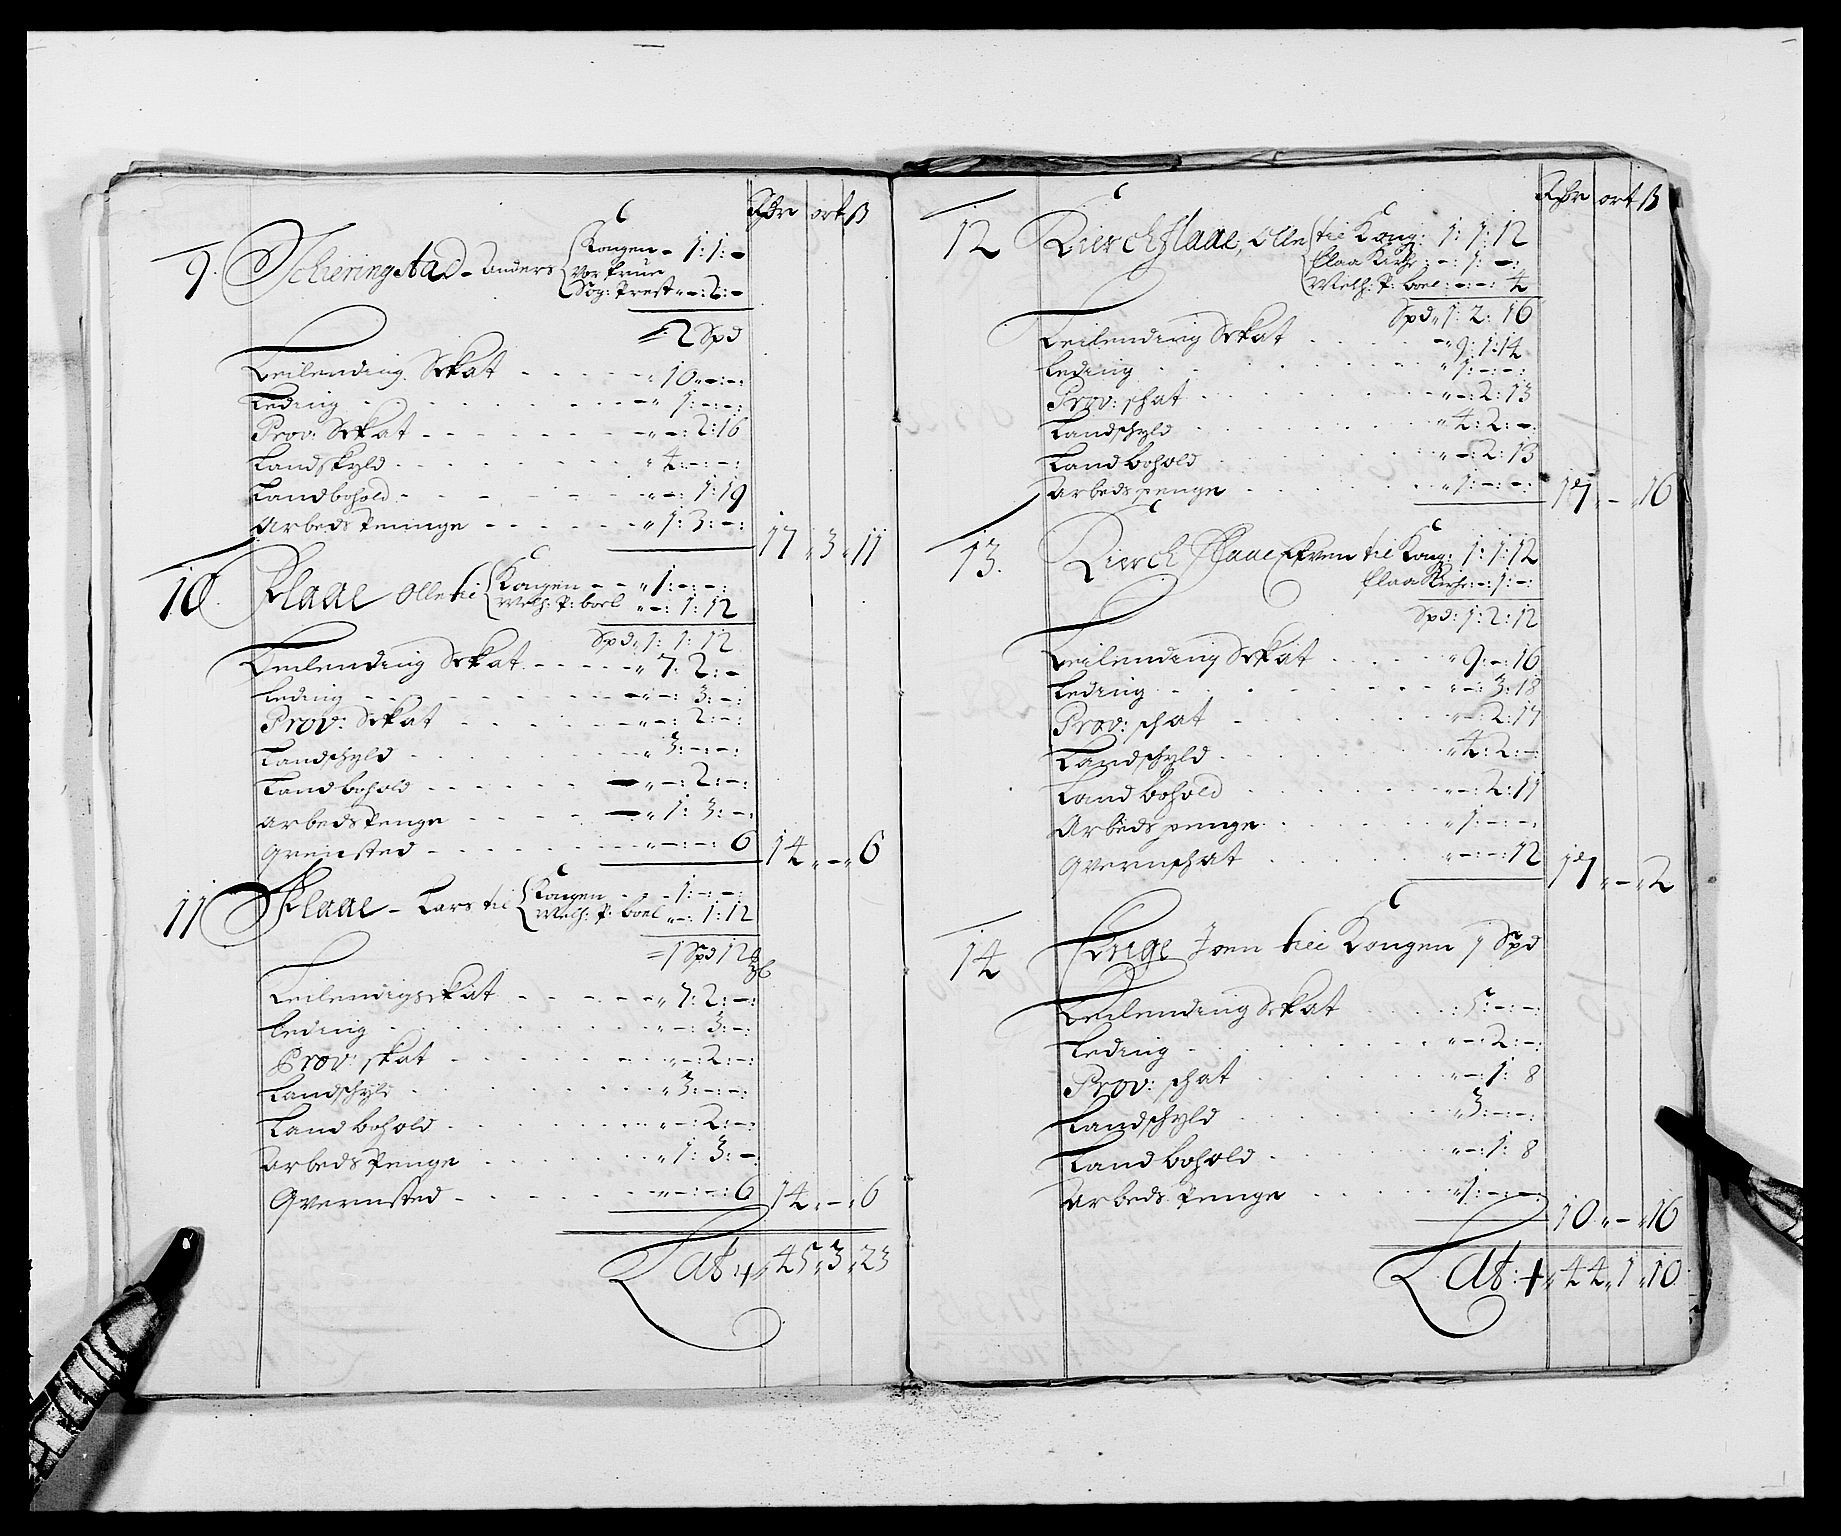 Rdr ort ß
9. Scheringstad - Anders { Kongen - 1: 1: -
Vor Frue
Sog: Prest - -: 2: -
= 2 Spd
Leilending Skat - - - - - " 10 - -:
Leding - - - - - " 1: -: -:
Prov: Skat - - - - - " -: 2: 16
Landskyld - - - - - " 4: -: -:
Landbohold - - - - - " -: 1: 19
Arbeds Peninge - - - - - " 1: 3: -: 17 " 3 " 11
10. Flaae Olle til { Kongen - - " 1: -: -:
Melh: P: boel " -: 1: 12
Spd " 1: 1: 12
Leilending Skat - - - - - " 7: 2: -
Leding - - - - - " -: 3: -:
Prov: Skat - - - - - " -: 2: -:
Landschyld - - - - - " 3: -: -:
Landbohold - - - - - " -: 2: -:
Arbeds Penge - - - - - " 1: 3: -:
Qvernsted - - - - - " -: -: 6 14 " - " 6
11 Flaae - Lars til { Kongen - - 1: -: -:
Melh: P: boel " -: 1: 12
= 1 Spd 12
Leilendigskat - - - - - " 7: 2: -:
Leding - - - - - " -: 3: -:
Prov: skat - - - - - " -: 2: -:
Landschyld - - - - - " 3: -: -:
Land bohold - - - - - " -: 2: -:
Arbeds Penge - - - - - " 1: 3: -:
Qvernsted - - - - - " -: -: 6 14 " - " 6
Lat + " 45 " 3 " 23
Rdr ort ß
12 Kierchflaae, Olle { til Kong: 1: 1: 12
Flaa Kirke: -: 1: -:
Melh: P: boel: -: -: 4
Spd " 1: 2: 16
Leilending Skat - - - - - " 9: 1: 14
Leding - - - - - " 1: -: -:
Prov: schat - - - - - " -: 2: 13
Landschyld - - - - - " 4: 2: -:
Land bohold - - - - - " -: 2: 13
Arbeds penge - - - - - " 1: -: -: 17 " - " 16
13. Kierch Flaae Efven til Kong: 1: 1: 12
Flaa Kirke: -: 1: -:
Spd: 1: 2: 12
Leilending Skat - - - - - " 9: -: 16
Leding - - - - - " -: 3: 18
Prov: schat - - - - - " -: 2: 17
Landschyld - - - - - " 4: 2: -:
Land bohold - - - - - " -: 2: 17
Arbeds penge - - - - - " 1: -: -:
Qvernschat - - - - - " -: -: 12 17 " - " 2
14 Joen til Kongen 1 Spd
Leilending Skat - - - - - : 5: -: -:
Leding - - - - - " -: 2: -:
Prov: schat - - - - - " -: 1: 8
Landschyld - - - - - " 3: -: -:
Land bohold - - - - - " -: 1: 8
Arbeds Penge - - - - - " 1: -: -: 10 " - " 16
Lat: + " 44 " 1 " 10